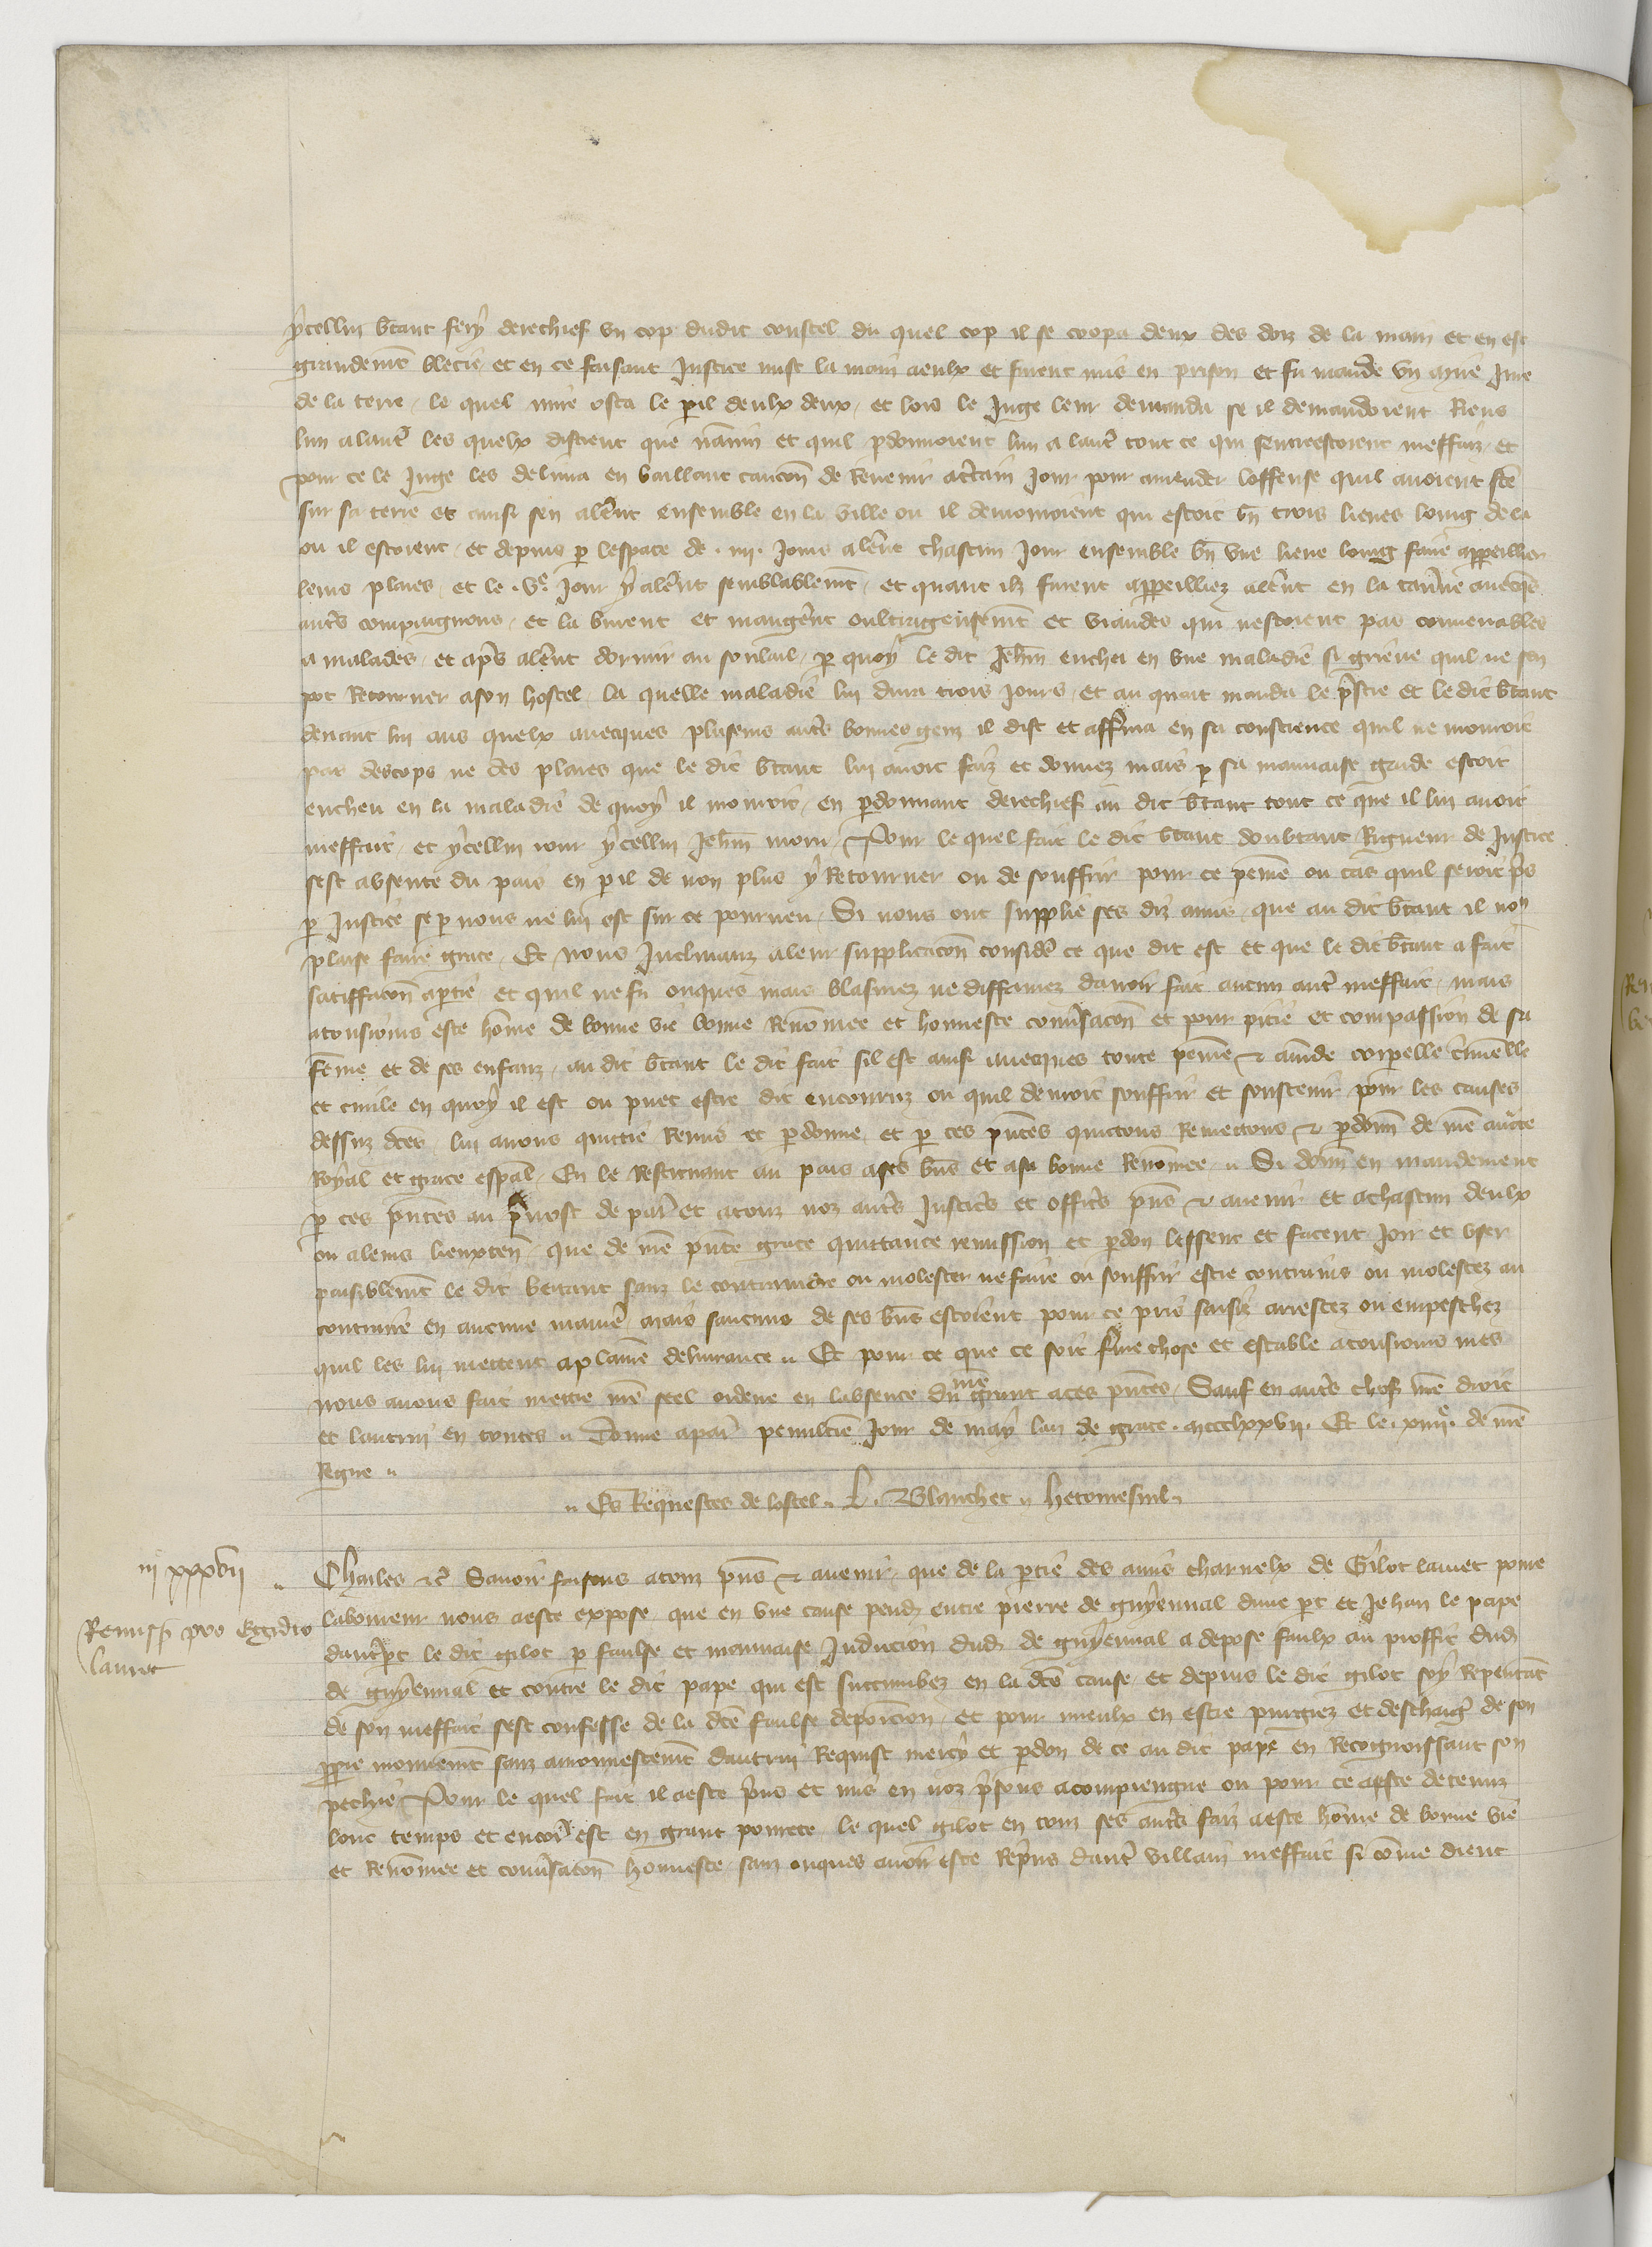 ycellui btant fery derechief un cop dudit coustel du quel cop il se coopa deux des doiz de la main et en est
grandemt blecie et en ce faisant Justice mist la main a eulx et furent mis en prison et fu mande un mire Jure
de la terre le quel mire osta le peril deulx deux et lors le Juge leur demanda se il demandoient Riens
lun a lautre les quelx disrent que nannin et quil pdonnoient lun a lautre tout ce qui sentreestoient meffaiz et
pour ce le Juge les delivra en baillant caucon de Revenir a ctain Jour pour amender loffense quil avoient fte
sur sa terre et ainsi sen alerent ensemble en la ville ou il demouroient qui estoit bn trois lieues loing de la
ou il estoient et depuis p lespace de .IIII. Jours alerent chascun Jour ensemble bn une lieue loing faire appeillier
leurs plaies et le .Ve. Jour y alerent semblablemt et quant ilz furent appeilliez alerent en la taverne avecqs
autrs compaignons et la burent et mangerent oultrageusemt et viandes qui nestoient pas convenables
a malades et aprs alerent dormir au souleil p quoy le dit Jehan enchei en une maladie si griefve quil ne sen
pot Retourner a son hostel la quelle maladie lui dura trois Jours et au quart manda le prestre et le dit btant
devant lui aus quelx avecques pluseurs autrs bonnes genz il dist et afferma en sa conscience quil ne mouroit
pas des cops ne des plaies que le dit btant lui avoit faiz et donnez mais p sa mauvaise garde estoit
encheu en la maladie de quoy il mouroit en pdonnant derechief au dit btant tout ce que il lui avoit
meffait et ycellui iour ycellui Jehan moru Pour le quel fait le dit btant doubtant Rigueur de Justice
sest absente du pais en peril de non plus y Retourner ou de souffrir pour ce peine ou cas quil seroit pris
p Justice se p nous ne lui est sur ce pourveu Si nous ont supplie ses diz amis que au dit btant il no
plaise faire grace Et nous Inclinanz a leur supplicacon conside ce que dit est et que le dit btant a fait
satiffacon a ptie et quil ne fu onques mais blasmez ne diffamez davoir fait aucun autre meffait mais
a tousiours este home de bonne vie bonne Renomee et honneste conversacon et pour pitie et compassion de sa
feme et de ses enfanz au dit btant le dit fait sil est ainsi avecques toute peine et amde corporelle criminelle
et civile en quoy il est ou puet estre dit encouruz ou quil devroit souffrir et soustenir pour les causes
dessuz dces lui avons quittie Remis et pdonne et p ces pntes quictons Remettons et pdonn de nre aucte
Royal et grace espal En le Restituant au pais a ses bns et a sa bonne Renomee Si donn en mandement
p ces pntes au prevost de par et a touz noz autrs Justicrs et officrs pns et avenir et a chascun deulx
ou a leurs lieuxten que de nre pnte grace quittance remission et pdon lessent et facent Joir et user
paisiblemt le dit bertant sanz le contraindre ou molester ne faire ou souffrir estre contrains ou molestez au
contraire en aucune maniere mais saucuns de ses bns estoient pour ce pris saisiz arrestez ou empeschez
quil les lui mettent a plaine delivrance Et pour ce que ce soit ferme chose et estable a tousiours mes
nous avons fait mettre nre seel ordene en labsence du nre grant a ces pntes Sauf en autrs choses nre droit
et lautrui en toutes Donne a par penultie Jour de may lan de grace .MCCCLXXVII. Et le .XIIIIe. de nre
Regne
Es Requestes de lostel L. Blanchet hetomesnil
III XXXVII
Remissio pro Egidio
lavict
Charles etc Savoir faisons a touz pns et avenir que de la ptie des amis charnelx de Gilot lavict povre
laboureur nous a este expose que en une cause pend entre pierre de guyenval dune pt et Jehan le pape
dautre pt le dit gilot p faulse et mauvaise Induccion dud de guyenval a depose faulx au proffit dud
de guyenval et contre le dit pape qui est succumbez en la dce cause et depuis le dit gilot soy Repentant
de son meffait sest confesse de la dce faulse deposicion et pour mieulx en estre purgiez et deschargie de son
ppre mouvemt sanz amonnestemt dautrui Requist mercy et pdon de ce au dit pape en Recognoissant son
pechie Pour le quel fait il a este prns et mis en noz prisons a compiengne ou pour ce a este detenuz
lonc temps et encor est en grant povrete le quel gilot en touz ses autrs faiz a este home de bonne vie
et Renomee et conversacon honneste sanz onques avoir este Reprins dautre villain meffait si come dient